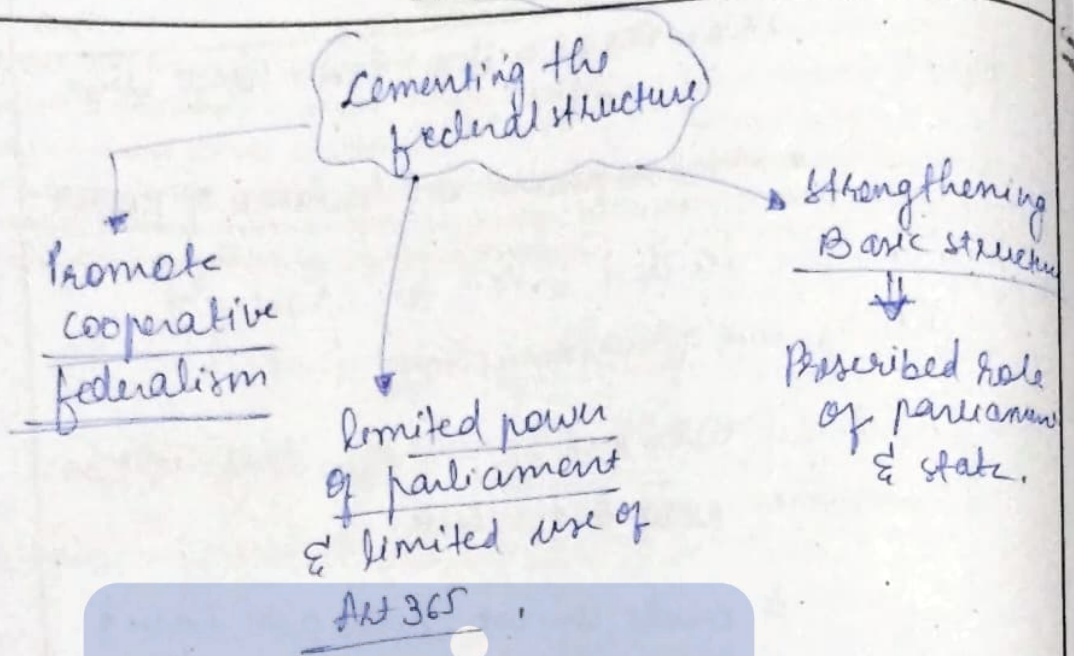 Cementing the
federal structure
Promote
cooperative
federalism
limited power
of parliament
& limited use of
Art 365.
Strengthening
Basic structu
Prescribed role
of parliamen
& state.